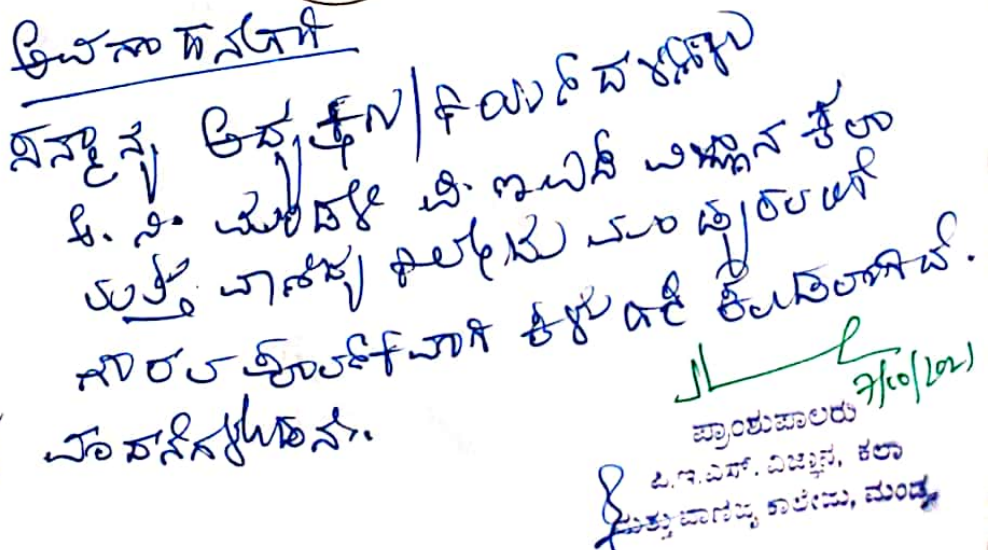 ಅವಗಾಹನೆಗಾಗಿ
ಸನ್ಮಾನ್ಯ ಅಧ್ಯಕ್ಷರು/ಕಾರ್ಯದರ್ಶಿಗಳು
ವಿಜ್ಞಾನ ಕಲಾ
ಮತ್ತು ವಾಣಿಜ್ಯ ಕಾಲೇಜು ಮಂಡ್ಯ ರವರಿಗೆ
ಗೌರವ ಪೂರ್ವಕವಾಗಿ ಕಳುಹಿಸಿ ಕೊಡಲಾಗಿದೆ.
ವಂದನೆಗಳೊಡನೆ.
7/10/2021
ಪ್ರಾಂಶುಪಾಲರು
ಪಿ.ಇ.ಎಸ್. ವಿಜ್ಞಾನ, ಕಲಾ
ಮತ್ತು ವಾಣಿಜ್ಯ ಕಾಲೇಜು, ಮಂಡ್ಯ